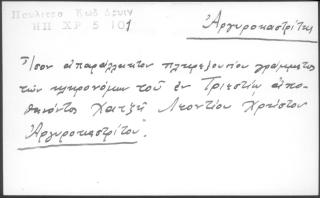 Πουλίτσα Κωδ
ΗΠ ΧΡ 5 101
Ἀργυροκαστρίτης
Ἴσον ἀπαράλλακτον πληρεξουσίου γράμματος
τῶν κληρονόμων τοῦ ἐν Τριεστίῳ ἀπο-
θανόντος Χατζῆ Λεοντίου Χρήστου
Ἀργυροκαστρίτου".